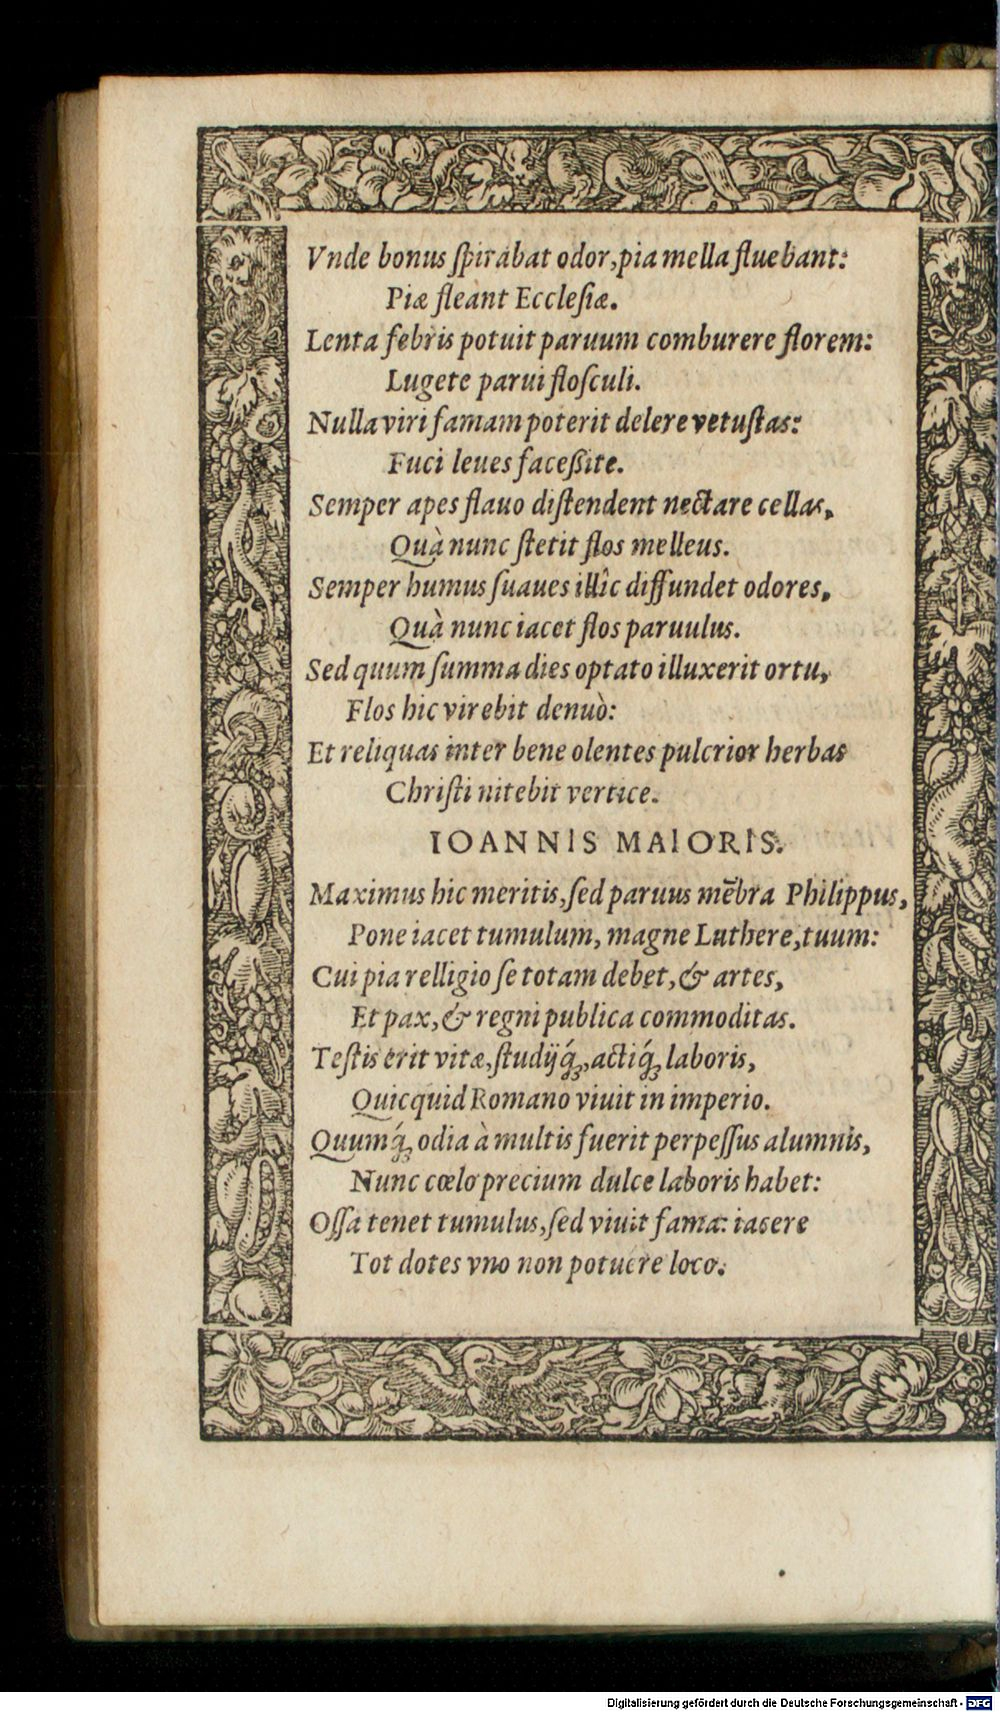 Vnde bonus ſpirabat odor, pia mella fluebant:
Piæ fleant Eccleſiæ.
Lenta febris potuit paruum comburere florem:
Lugete parui floſculi.
Nulla viri famam poterit delere vetuſtas:
Fuci leues faceßite.
Semper apes flauo diſtendent nectare cellas,
Quà nunc ſtetit flos melleus.
Semper humus ſuaues illîc diffundet odores,
Quà nunc iacet flos paruulus.
Sed quum ſumma dies optato illuxerit ortu,
Flos hic virebit denuò:
Et reliquas inter bene olentes pulcrior herbas
Chriſti nitebit vertice.
IOANNIS MAIORIS.
Maximus hic meritis, ſed paruus mēbra Philippus,
Pone iacet tumulum, magne Luthere, tuum:
Cui pia relligio ſe totam debet, & artes,
Et pax, & regni publica commoditas.
Teſtis erit vitæ, ſtudijq́;, actiq́; laboris,
Quicquid Romano viuit in imperio.
Quumq́; odia à multis fuerit perpeſſus alumnis,
Nunc cœlo precium dulce laboris habet:
Oſſa tenet tumulus, ſed viuit fama: iacere
Tot dotes vno non potuere loco.
Digitalisierung gefördert durch die Deutsche Forschungsgemeinschaft - DFG